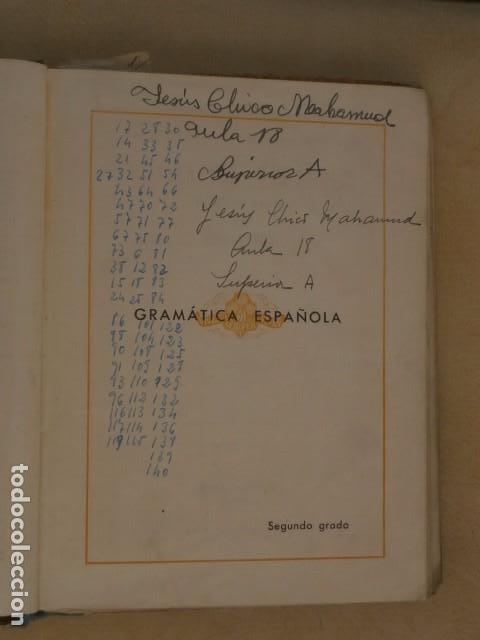 Jesús Chico Mahamud
17 28 30 Aula 18
14 33 35
21 45 46
27 32 51 54 Superior A
43 64 66
47 70 72 Jesús Chico Mahamud
57 71 77
67 75 80 Aula 18
73 6 81
38 12 82 Superior A
15 18 83
24 25 84
GRAMÁTICA ESPAÑOLA
86 101 122
88 104 123
90 108 125
91 109 127
93 110 129
96 112 132
116 113 134
117 114 136
119 115 137
139
140
Segundo grado
todocoleccion.net